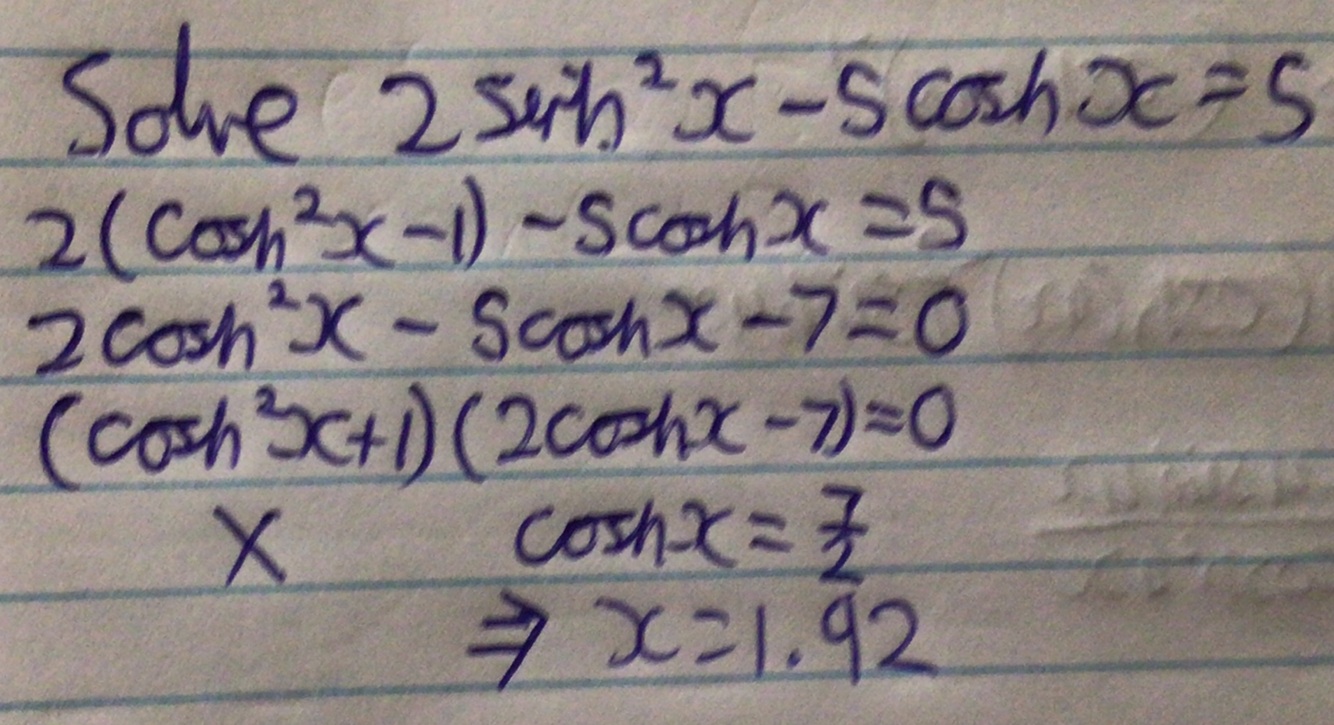 Solve 2 sinh²x - 5 cosh x = 5
2(cosh²x - 1) - 5 cosh x = 5
2cosh²x - 5 cosh x - 7 = 0
(cosh²x + 1)(2cosh x - 7) = 0
X cosh x = 7/2
⇒ x = 1.92